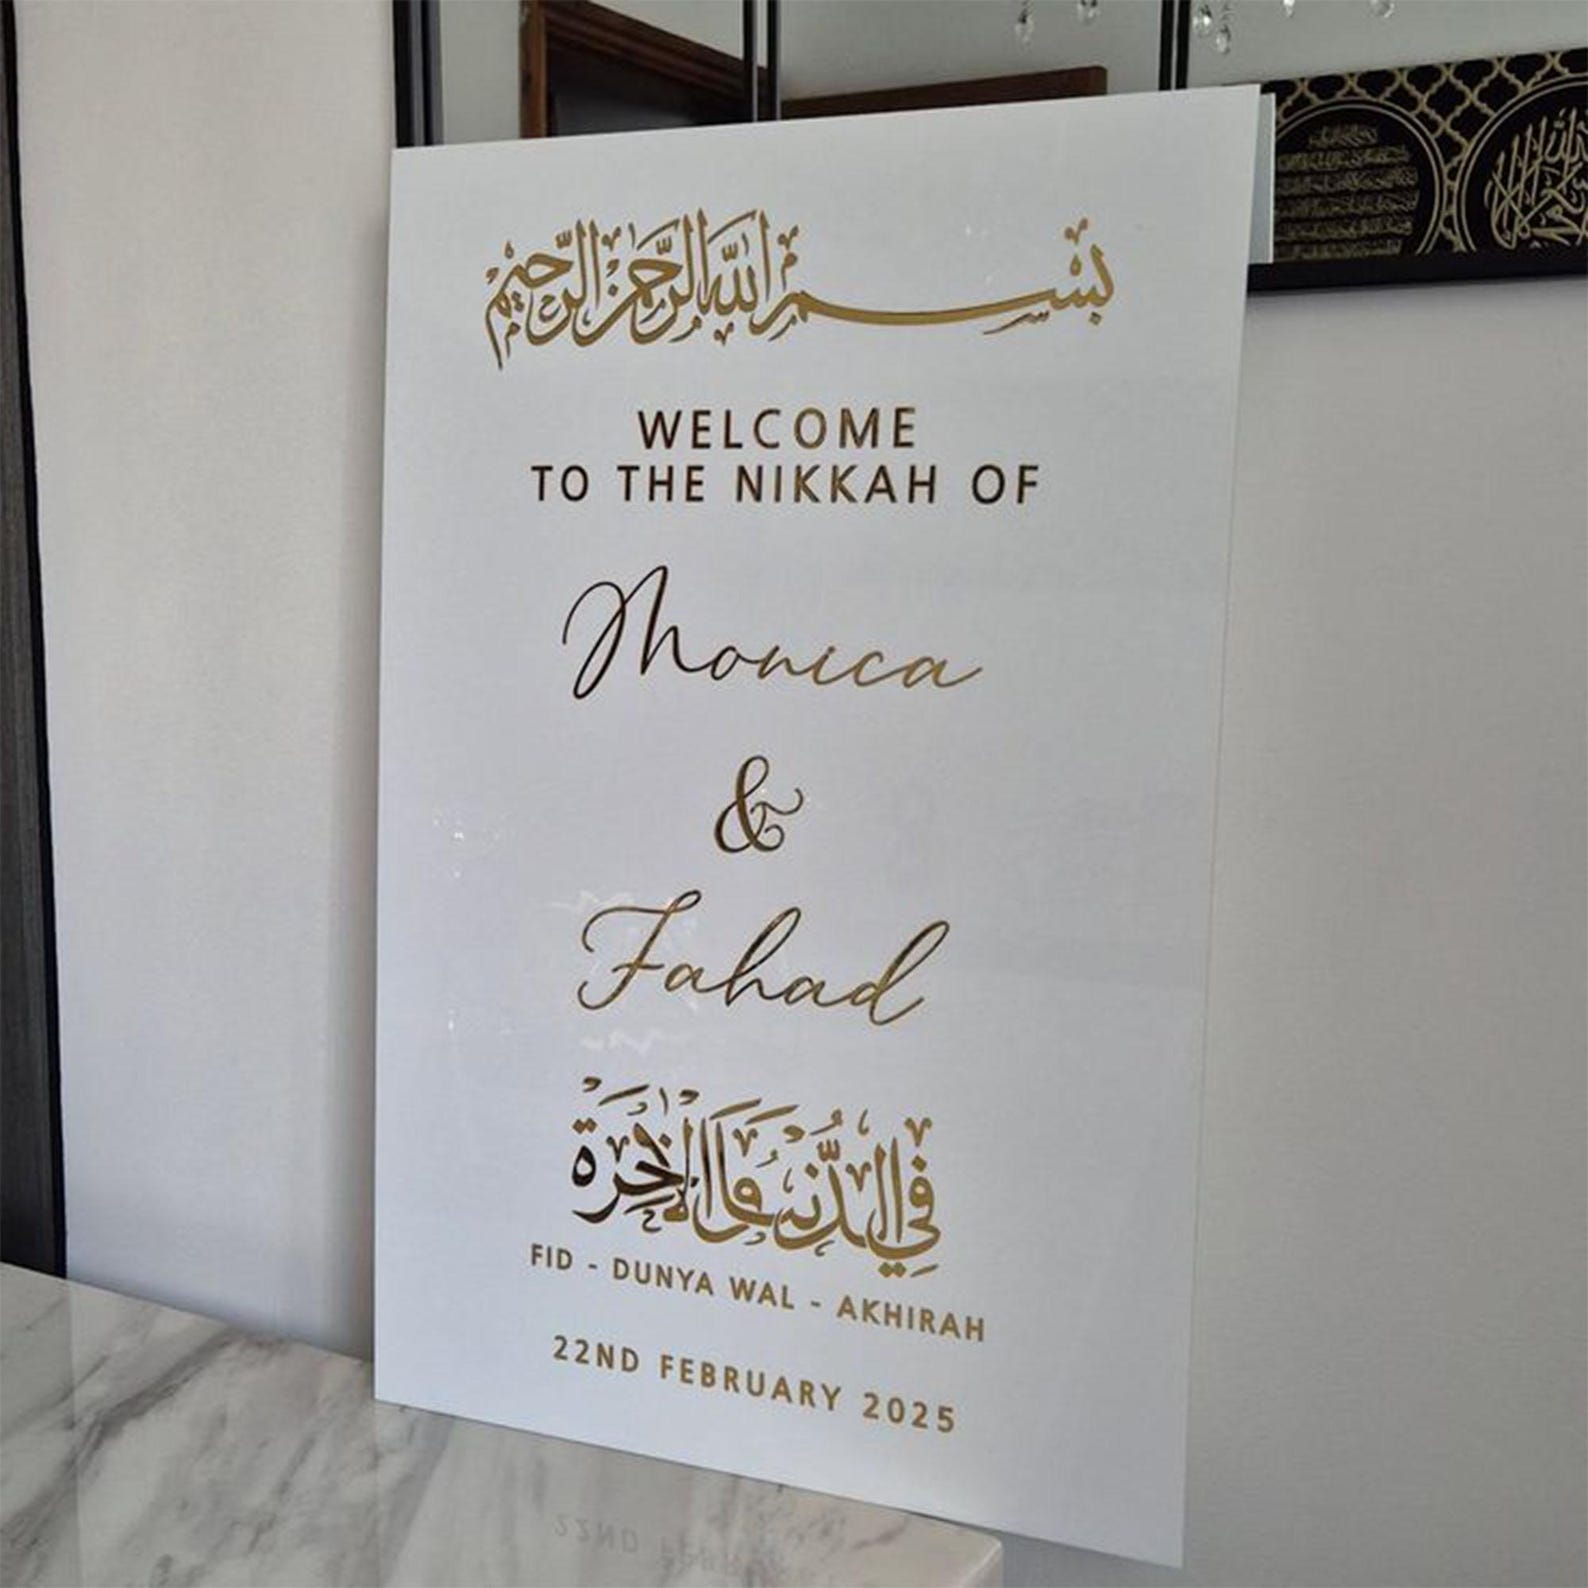 بِسْمِ اللهِ الرَّحْمٰنِ الرَّحِيْمِ
WELCOME
TO THE NIKKAH OF
Monica
&
Fahad
فِي الدُّنْيَا وَالْآخِرَة
FID - DUNYA WAL - AKHIRAH
22ND FEBRUARY 2025